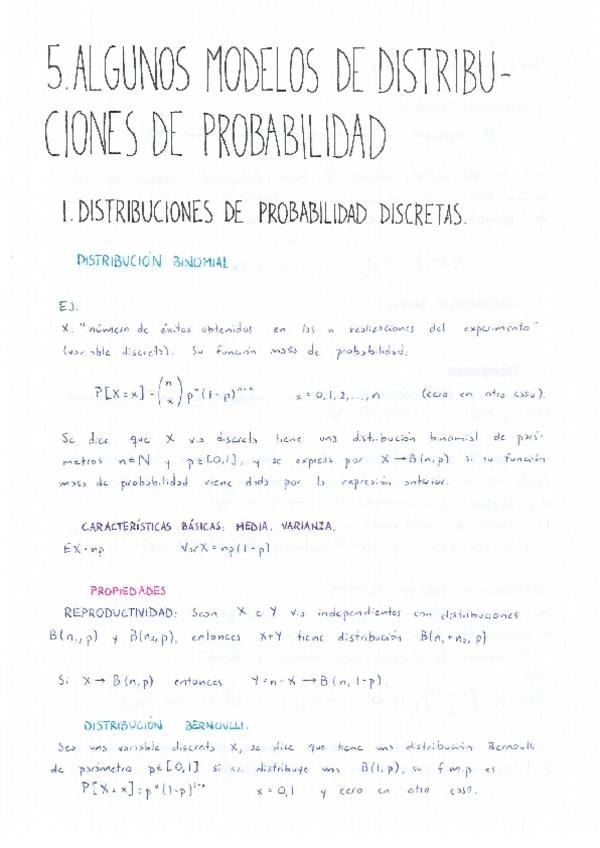 5. ALGUNOS MODELOS DE DISTRIBU-
CIONES DE PROBABILIDAD
1. DISTRIBUCIONES DE PROBABILIDAD DISCRETAS.
DISTRIBUCIÓN BINOMIAL
EJ.
X: "número de éxitos obtenidos en las n realizaciones del experimento"
(variable discreta). Su función masa de probabilidad:
P[X=x] = (n x) p^x (1-p)^{n-x}    x = 0, 1, 2, ..., n    (cero en otro caso).
Se dice que X va discreta tiene una distribución binomial de pará-
metros n∈N y p∈[0,1], y se expresa por X → B(n,p) si su función
masa de probabilidad viene dada por la expresión anterior.
CARACTERÍSTICAS BÁSICAS: MEDIA. VARIANZA.
EX = np    VarX = np(1-p)
PROPIEDADES
REPRODUCTIVIDAD: Sean X e Y v.a independientes con distribuciones
B(n₁,p) y B(n₂,p), entonces X+Y tiene distribución B(n₁+n₂,p)
Si X → B(n,p) entonces Y = n-X → B(n, 1-p).
DISTRIBUCIÓN BERNOULLI.
Sea una variable discreta X, se dice que tiene una distribución Bernoulli
de parámetro p∈[0,1] si se distribuye una B(1,p), su f.m.p es
P[X=x] = p^x (1-p)^{1-x}    x = 0, 1 y cero en otro caso.